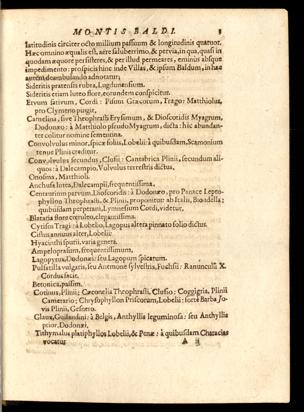 MONTIS BALDI.
latitudinis circiter octo millium passuum & longitudinis quatuor.
Hæc omnino æqualis est, aëre saluberrimo, & pervia, in qua, quasi in
quodam æquore persisteres, & per illud permeares, eminùs absque
impedimento: prospicis hinc inde Villas, & ipsum Baldum, in hac
autem deambulando adnotatur;
Sideritis pratensis rubra, Lugdunensium.
Sideritis etiam luteo flore, eorundem conspicitur.
Ervum sativum, Cordi: Pisum Græcorum, Trago: Matthiolus,
pro Clymeno pingit.
Camelina, sive Theophrasti Erysimum, & Dioscoridis Myagrum,
Dodonæo: à Matthiolo pseudo Myagrum, dicta: hic abundan-
ter colitur nomine sementina.
Convolvulus minor, spicæ folius, Lobelii: à quibusdam, Scamonium
tenue Plinii creditur.
Convolvulus secundus, Clusii: Cantabrica Plinii, secundum ali-
quos: à Dalecampio, Vulvulus terrestris dictus,
Onosma, Matthioli.
Anchusa lutea, Dalecampii, frequentissima.
Centaurium parvum, Dioscoridis: à Dodonæo, pro Panace Lepto-
phyllon Theophrasti, & Plinii, proponitur: ab Italis, Biondella;
quibusdam perperam, Lymnesium Cordi, videtur,
Blataria flore cœruleo, elegantissima.
Cytisus Tragi: à Lobelio, Lagopus altera pinnato folio dictus.
Cistus annuus alter, Lobelii:
Hyacinthi spurii, varia genera.
Ampeloprasum, frequentissimum,
Lagopyrus, Dodonæi: seu Lagopum spicatum.
Pulsatilla vulgaris, seu Anemone sylvestris, Fuchsii: Ranunculi X.
Cordus facit.
Betonica, passim.
Cotinus, Plinii; Cæconelia Theophrasti, Clusio: Coggigria, Plinii
Camerario; Chrysophyllon Priscorum, Lobelii: fortè Barba Jo-
vis Plinii, Gesnero.
Glaux, Guilandini: à Belgis, Anthyllis leguminosa: seu Anthyllis
prior, Dodonæi,
Tithymalus platiphyllos Lobelii, & Penæ: à quibusdam Characias
vocatus
A ij